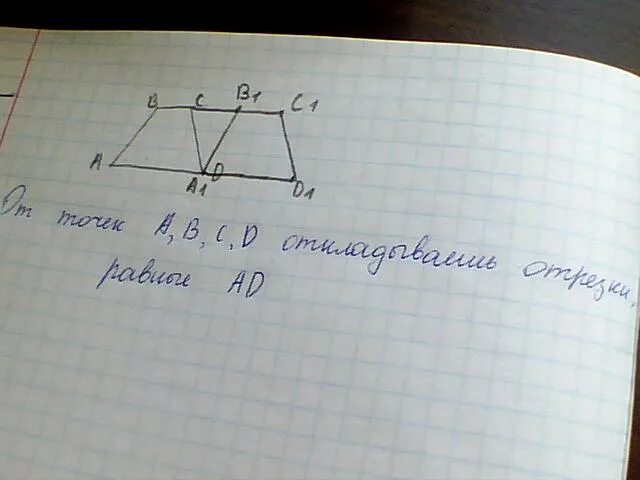 B C B1 C1
A D
A1 D1
От точек A, B, C, D откладываешь отрезки,
равные AD